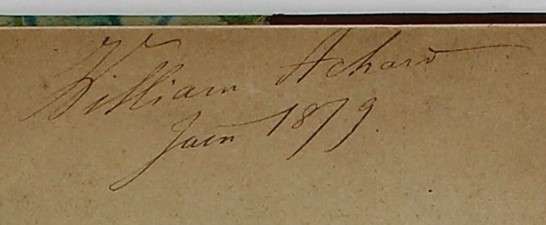 William Achard
Juin 1879.